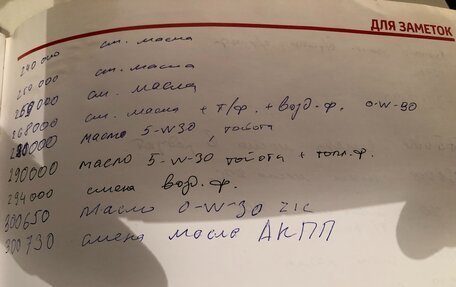 ДЛЯ ЗАМЕТОК
240 000 см. масла
250 000 см. масла
259 000 см. масла
268 000 см. масла + т/ф. + возд. ф. 0-W-30
280000 масло 5-W30, тойота
290000 масло 5-W-30 тойота + топл. ф.
294 000 смена возд. ф.
300650 Масло 0-W-30 ZIC
300 730 смена масла АКПП